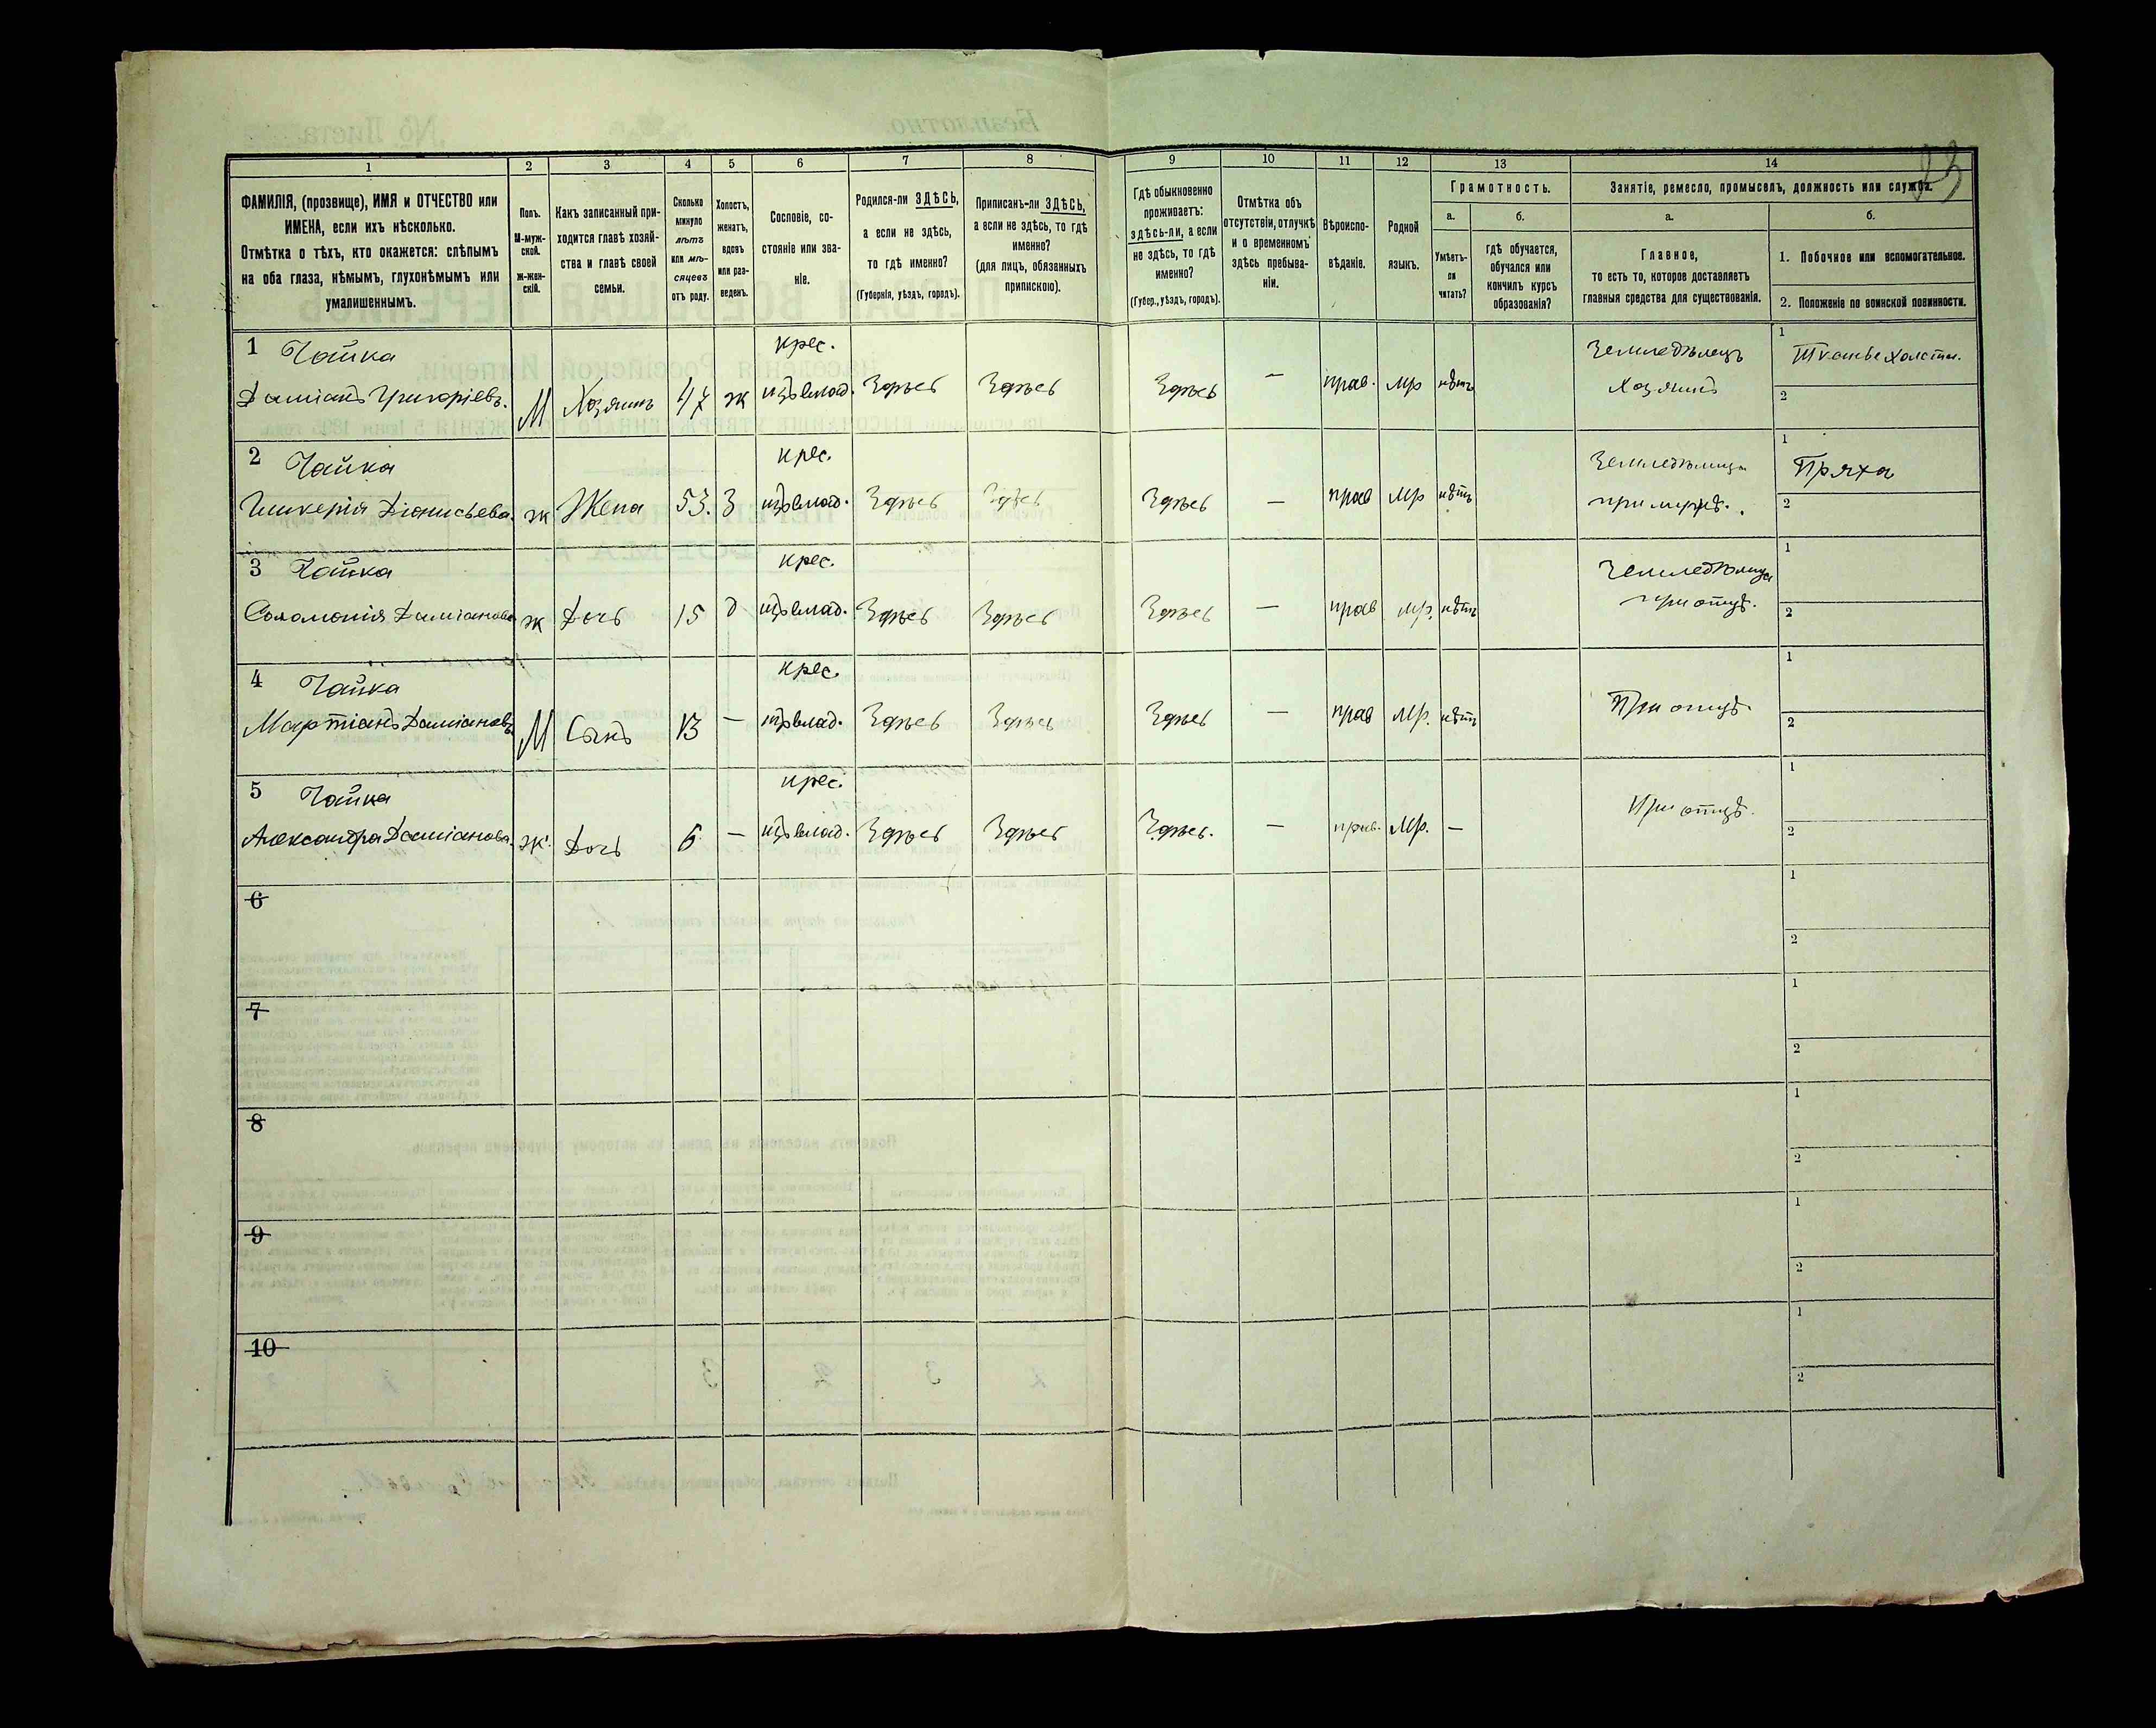 23
1 2 3 4 5 6 7 8 9 10 11 12 13 14
ФАМИЛІЯ, (прозвище), ИМЯ и ОТЧЕСТВО или
ИМЕНА, если ихъ нѣсколько.
Отмѣтка о тѣхъ, кто окажется: слѣпымъ
на оба глаза, нѣмымъ, глухонѣмымъ или
умалишеннымъ.
Полъ.
М-муж-
ской.
ж-жен-
скій.
Какъ записанный при-
ходится главѣ хозяй-
ства и главѣ своей
семьи.
Сколько
минуло
лѣтъ
или мѣ-
сяцевъ
отъ роду.
Холостъ,
женатъ,
вдовъ
или раз-
веденъ.
Сословіе, со-
стояніе или зва-
ніе.
Родился-ли ЗДѢСЬ,
а если не здѣсь,
то гдѣ именно?
(Губернія, уѣздъ, городъ).
Приписанъ-ли ЗДѢСЬ,
а если не здѣсь, то гдѣ
именно?
(для лицъ, обязанныхъ
припискою).
Гдѣ обыкновенно
проживаетъ:
здѣсь-ли, а если
не здѣсь, то гдѣ
именно?
(Губер., уѣздъ, городъ).
Отмѣтка объ
отсутствіи, отлучкѣ
и о временномъ
здѣсь пребыва-
ніи.
Вѣроиспо-
вѣданіе.
Родной
языкъ.
Грамотность.
а.
Умѣетъ-
ли
читать?
б.
гдѣ обучается,
обучался или
кончилъ курсъ
образованія?
Занятіе, ремесло, промыселъ, должность или служба.
а.
Главное,
то есть то, которое доставляетъ
главныя средства для существованія.
б.
1. Побочное или вспомогательное.
2. Положеніе по воинской повинности.
1 Чайка крес. Земледѣлецъ 1 Тканье холста.
Даміанъ Григоріевъ. М Хозяинъ 47 ж изъ влад. Здѣсь Здѣсь Здѣсь — прав. мр нѣтъ Хозяинъ 2
2 Чайка крес. Земледѣлица 1 Пряха
Діонисьева. ж Жена 53. З изъ влад. Здѣсь Здѣсь Здѣсь — прав мр нѣтъ при мужѣ. 2
3 Чайка крес. Земледѣлица 1
Соломонія Даміанова ж Дочь 15 д изъ влад. Здѣсь Здѣсь Здѣсь — прав мр. нѣтъ при отцѣ. 2
4 Чайка крес. 1
Мартіанъ Даміановъ. М Сынъ 13 — изъ влад. Здѣсь Здѣсь Здѣсь — прав мр. нѣтъ При отцѣ. 2
5 Чайка крес. 1
Александра Даміанова. ж. Дочь 6 — изъ влад. Здѣсь Здѣсь Здѣсь. — прав. мр. — При отцѣ. 2
6 1
2
7 1
2
8 1
2
9 1
2
10 1
2